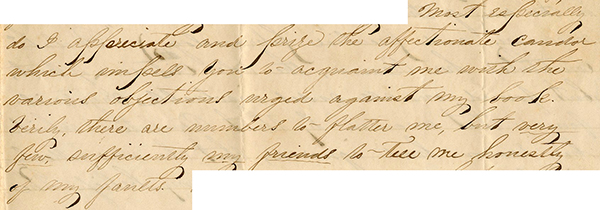 Most especially
do I appreciate and prize the affectionate candor
which impells you to acquaint me with the
various objections urged against my book.
Verily, there are numbers to flatter me, but very
few, sufficiently my friends to tell me honestly
of my faults.